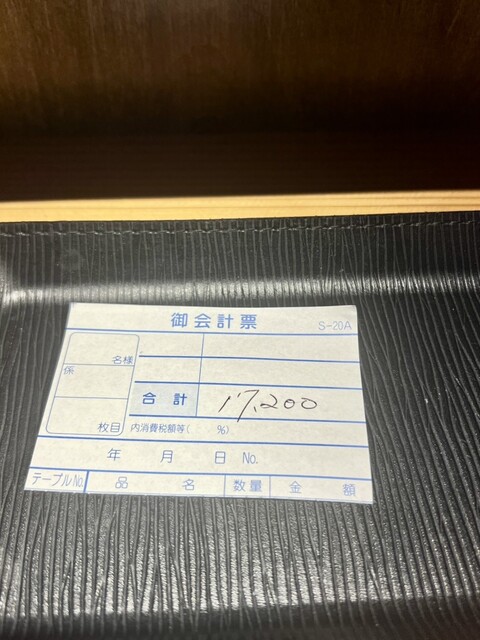 御会計票 S-20A
名様
係
合計 17,200
枚目 内消費税額等( %)
年 月 日 No.
テーブルNo. 品名 数量 金額